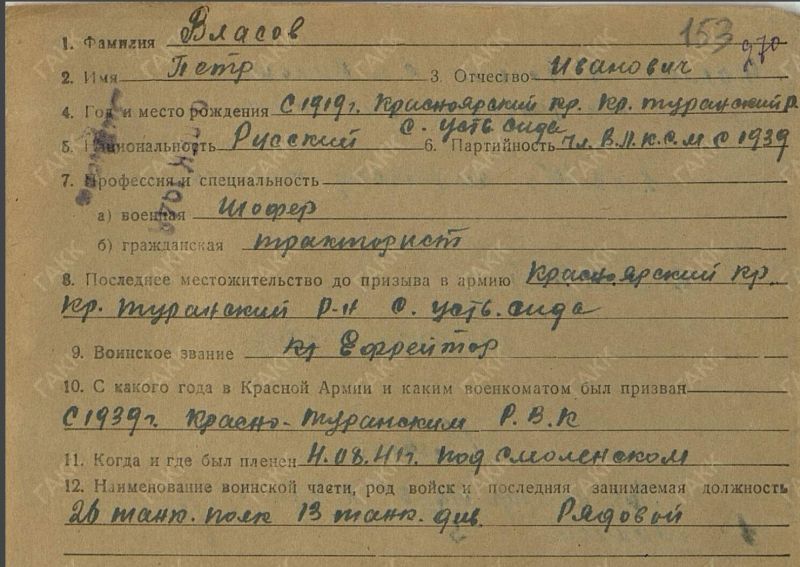 153
970
1. Фамилия Власов
2. Имя Петр 3. Отчество Иванович
4. Год и место рождения С 1919г. Красноярский кр. Кр. туранский р.
с. усть сида
5. Национальность Русский 6. Партийность Чл. В.Л.К.С.М с 1939
7. Профессия и специальность
а) военная Шофер
б) гражданская тракторист
8. Последнее местожительство до призыва в армию Красноярский кр.
Кр. туранский р-н с. усть. сида
9. Воинское звание Ефрейтор
10. С какого года в Красной Армии и каким военкоматом был призван
С 1939г. Красно-туранским Р.В.К
11. Когда и где был пленен 4.08.41г. под смоленском
12. Наименование воинской части, род войск и последняя занимаемая должность
26 танк. полк 13 танк. див. Рядовой
ГАКК